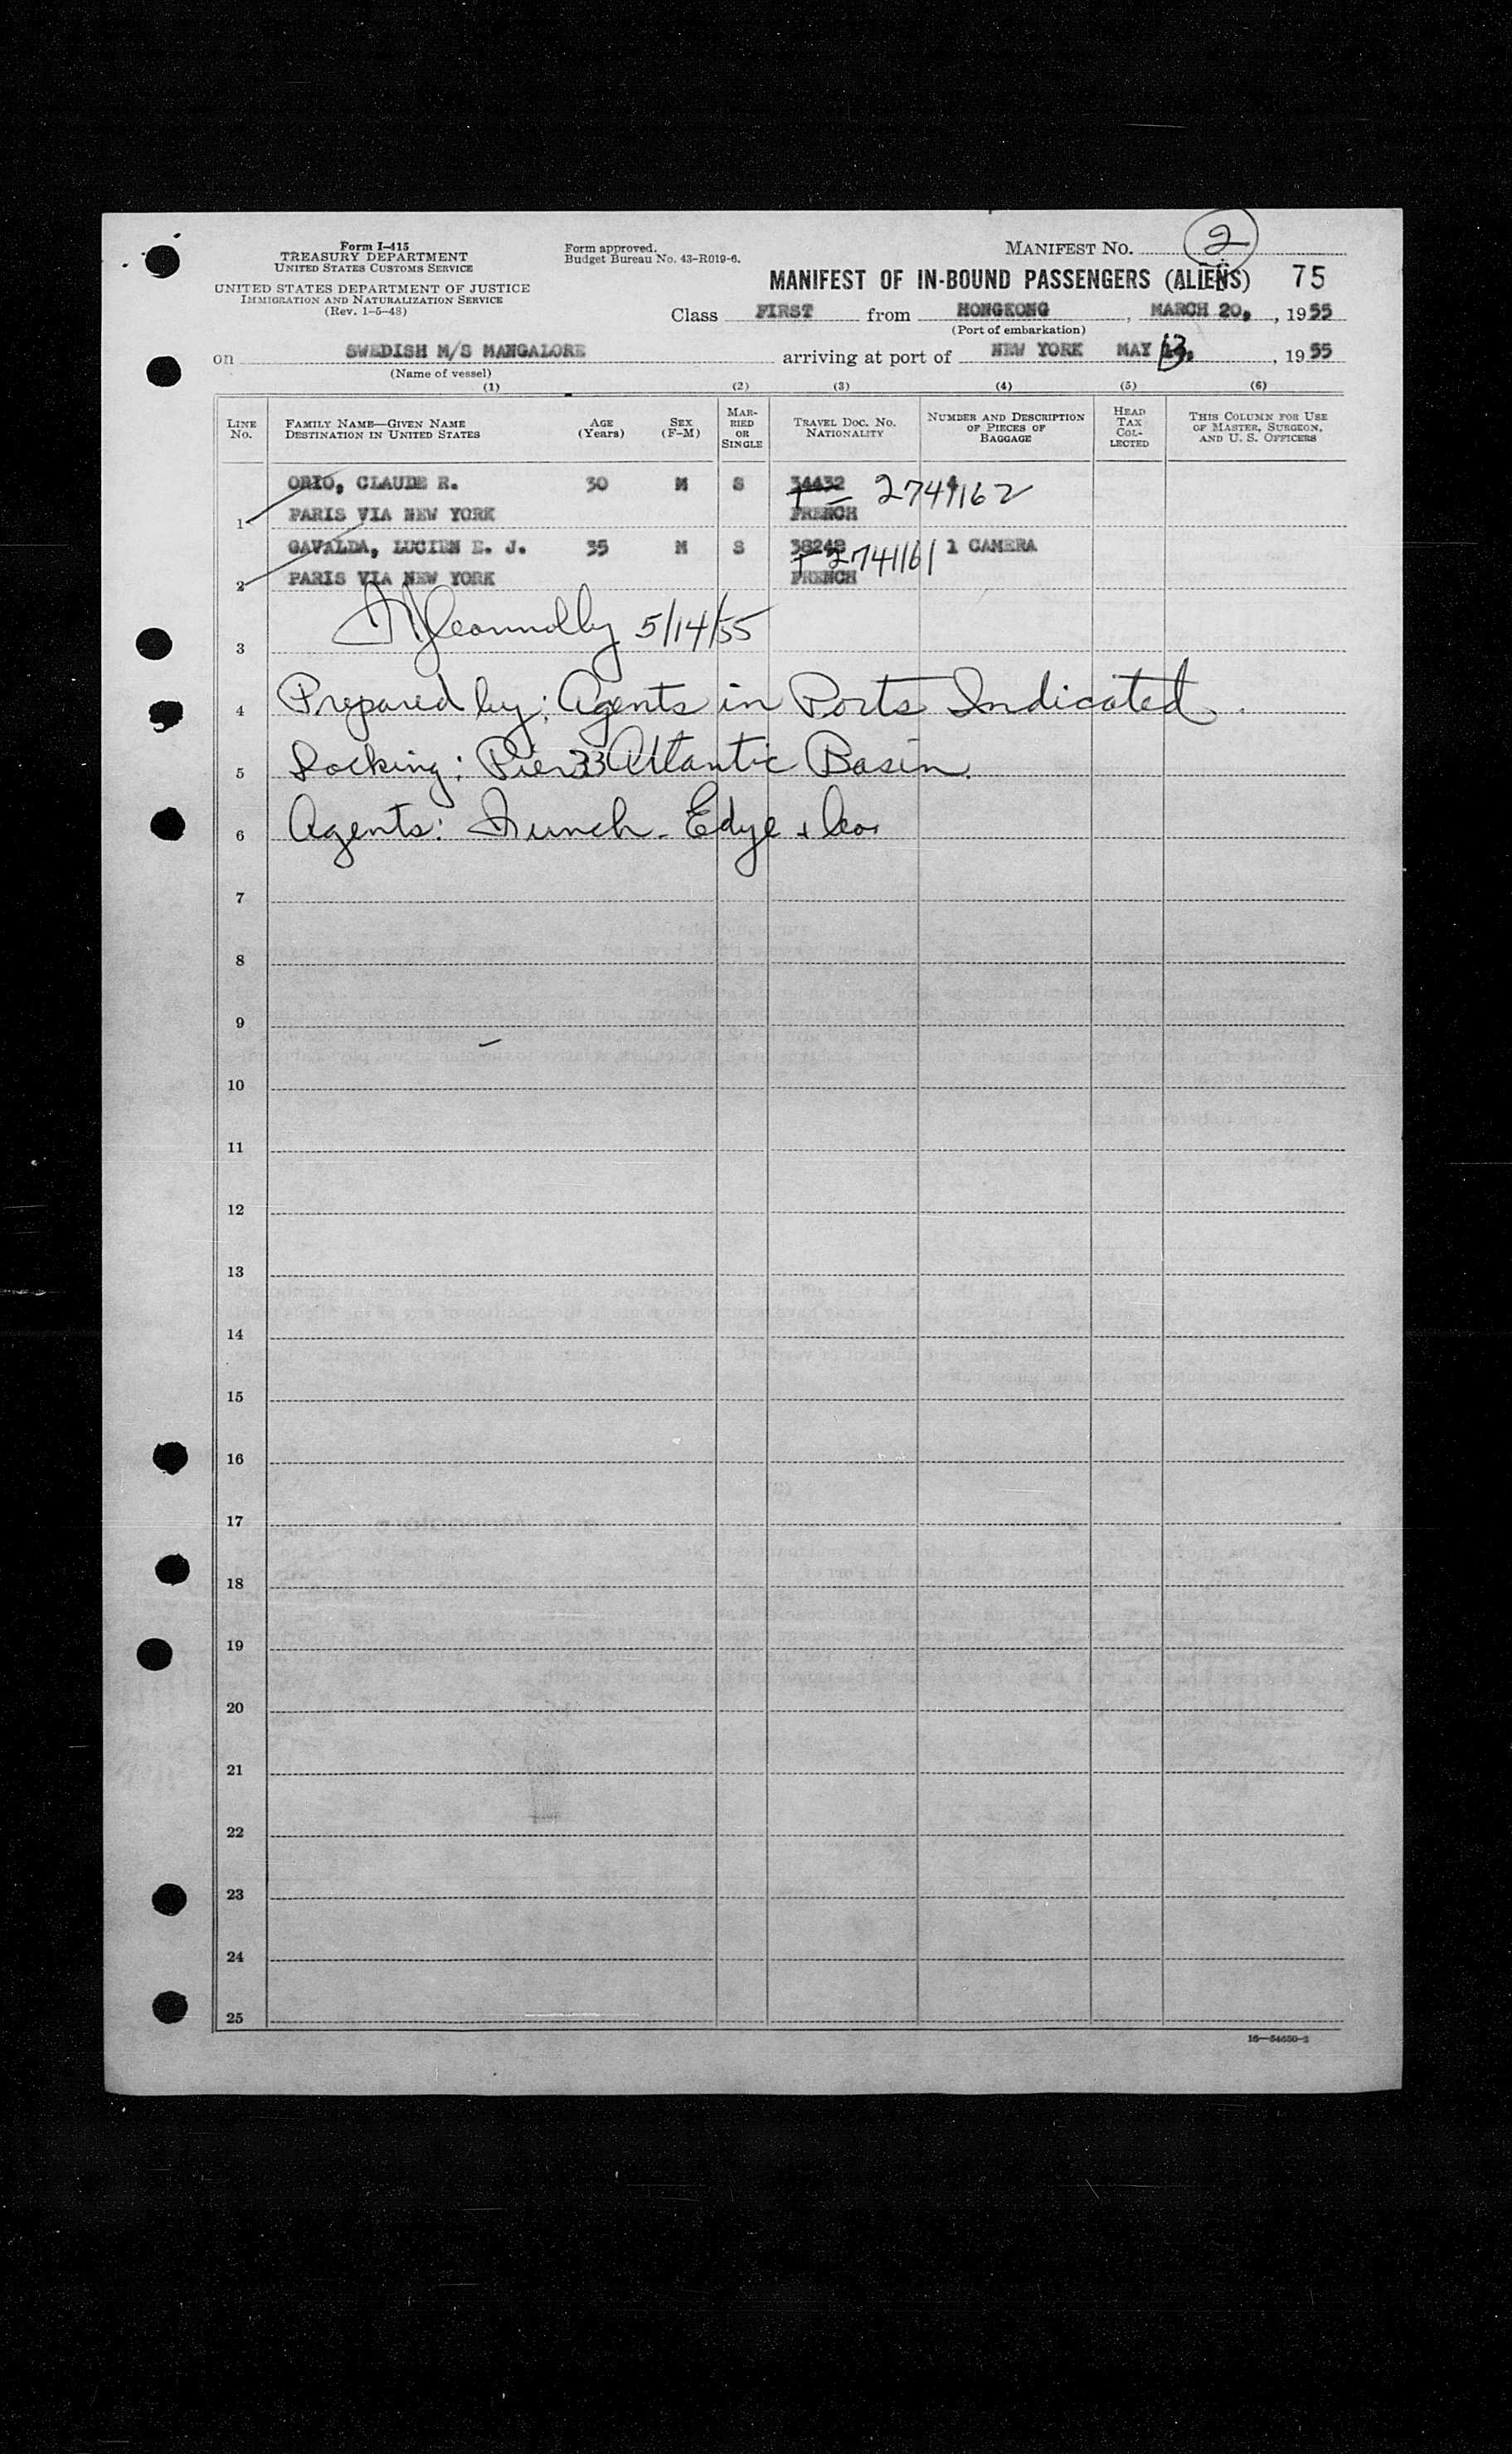 Form I-415
TREASURY DEPARTMENT
UNITED STATES CUSTOMS SERVICE
UNITED STATES DEPARTMENT OF JUSTICE
IMMIGRATION AND NATURALIZATION SERVICE
(Rev. 1-5-48)
Form approved.
Budget Bureau No. 43-R019-6.
MANIFEST NO. 2
MANIFEST OF IN-BOUND PASSENGERS (ALIENS) 75
Class FIRST from HONGKONG, MARCH 20, 1955
(Port of embarkation)
on SWEDISH M/S MANGALORE arriving at port of NEW YORK MAY 13, 1955
(Name of vessel)
(1) (2) (3) (4) (5) (6)
LINE No. FAMILY NAME—GIVEN NAME DESTINATION IN UNITED STATES AGE (Years) SEX (F-M) MARRIED OR SINGLE TRAVEL DOC. NO. NATIONALITY NUMBER AND DESCRIPTION OF PIECES OF BAGGAGE HEAD TAX COLLECTED THIS COLUMN FOR USE OF MASTER, SURGEON, AND U. S. OFFICERS
ORIO, CLAUDE R. 30 M S 34432 2749162
1 PARIS VIA NEW YORK FRENCH
GAVALDA, LUCIEN E. J. 35 M S 38248 2741161 1 CAMERA
2 PARIS VIA NEW YORK FRENCH
3 Connolly 5/14/55
4 Prepared by: Agents in Ports Indicated.
5 Docking: Pier 33 Atlantic Basin.
6 Agents: Funch-Edye & Co.
7
8
9
10
11
12
13
14
15
16
17
18
19
20
21
22
23
24
25
16—54650-2